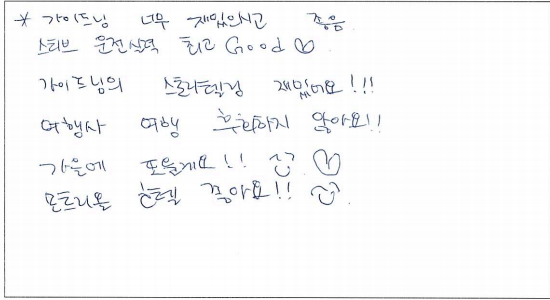 * 가이드님 너무 재밌으시고 좋음
스티브 운전실력 최고 Good ♡
가이드님의 스토리텔링 재밌어요!!!
여행사 여행 후회하지 않아요!!
가을에 또올게요!! ♡
몬트리올 호텔 좋아요!!